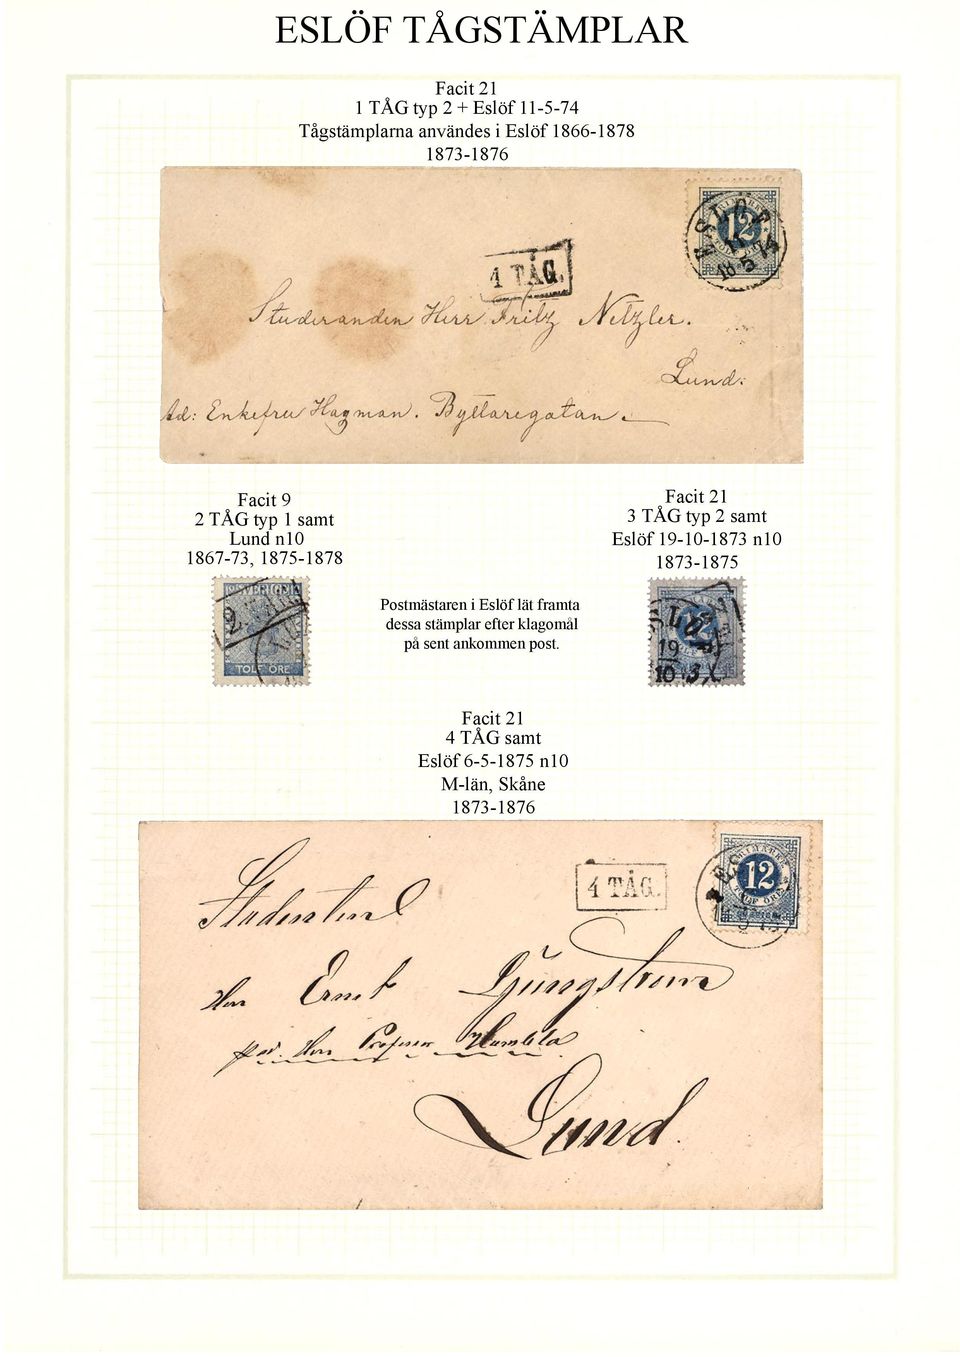 ESLÖF TÅGSTÄMPLAR
Facit 21
1 TÅG typ 2 + Eslöf 11-5-74
Tågstämplarna användes i Eslöf 1866-1878
1873-1876
ESLÖF
12
11
18 5 74
1 TÅG.
Studeranden Herr Fritz Netzler.
Lund:
Ad: Enkefru Hagman. Byttaregatan.
Facit 9
2 TÅG typ 1 samt
Lund n10
1867-73, 1875-1878
SVERIGE
2
TOLF ÖRE
Postmästaren i Eslöf lät framta
dessa stämplar efter klagomål
på sent ankommen post.
Facit 21
3 TÅG typ 2 samt
Eslöf 19-10-1873 n10
1873-1875
SLÖ
12
19
10 3
Facit 21
4 TÅG samt
Eslöf 6-5-1875 n10
M-län, Skåne
1873-1876
FRIMÄRKE
12
TOLF ÖRE
4 TÅG.
Studenten
Herr Ernst Ljungstrom
Herr Professor Humbla
Lund.